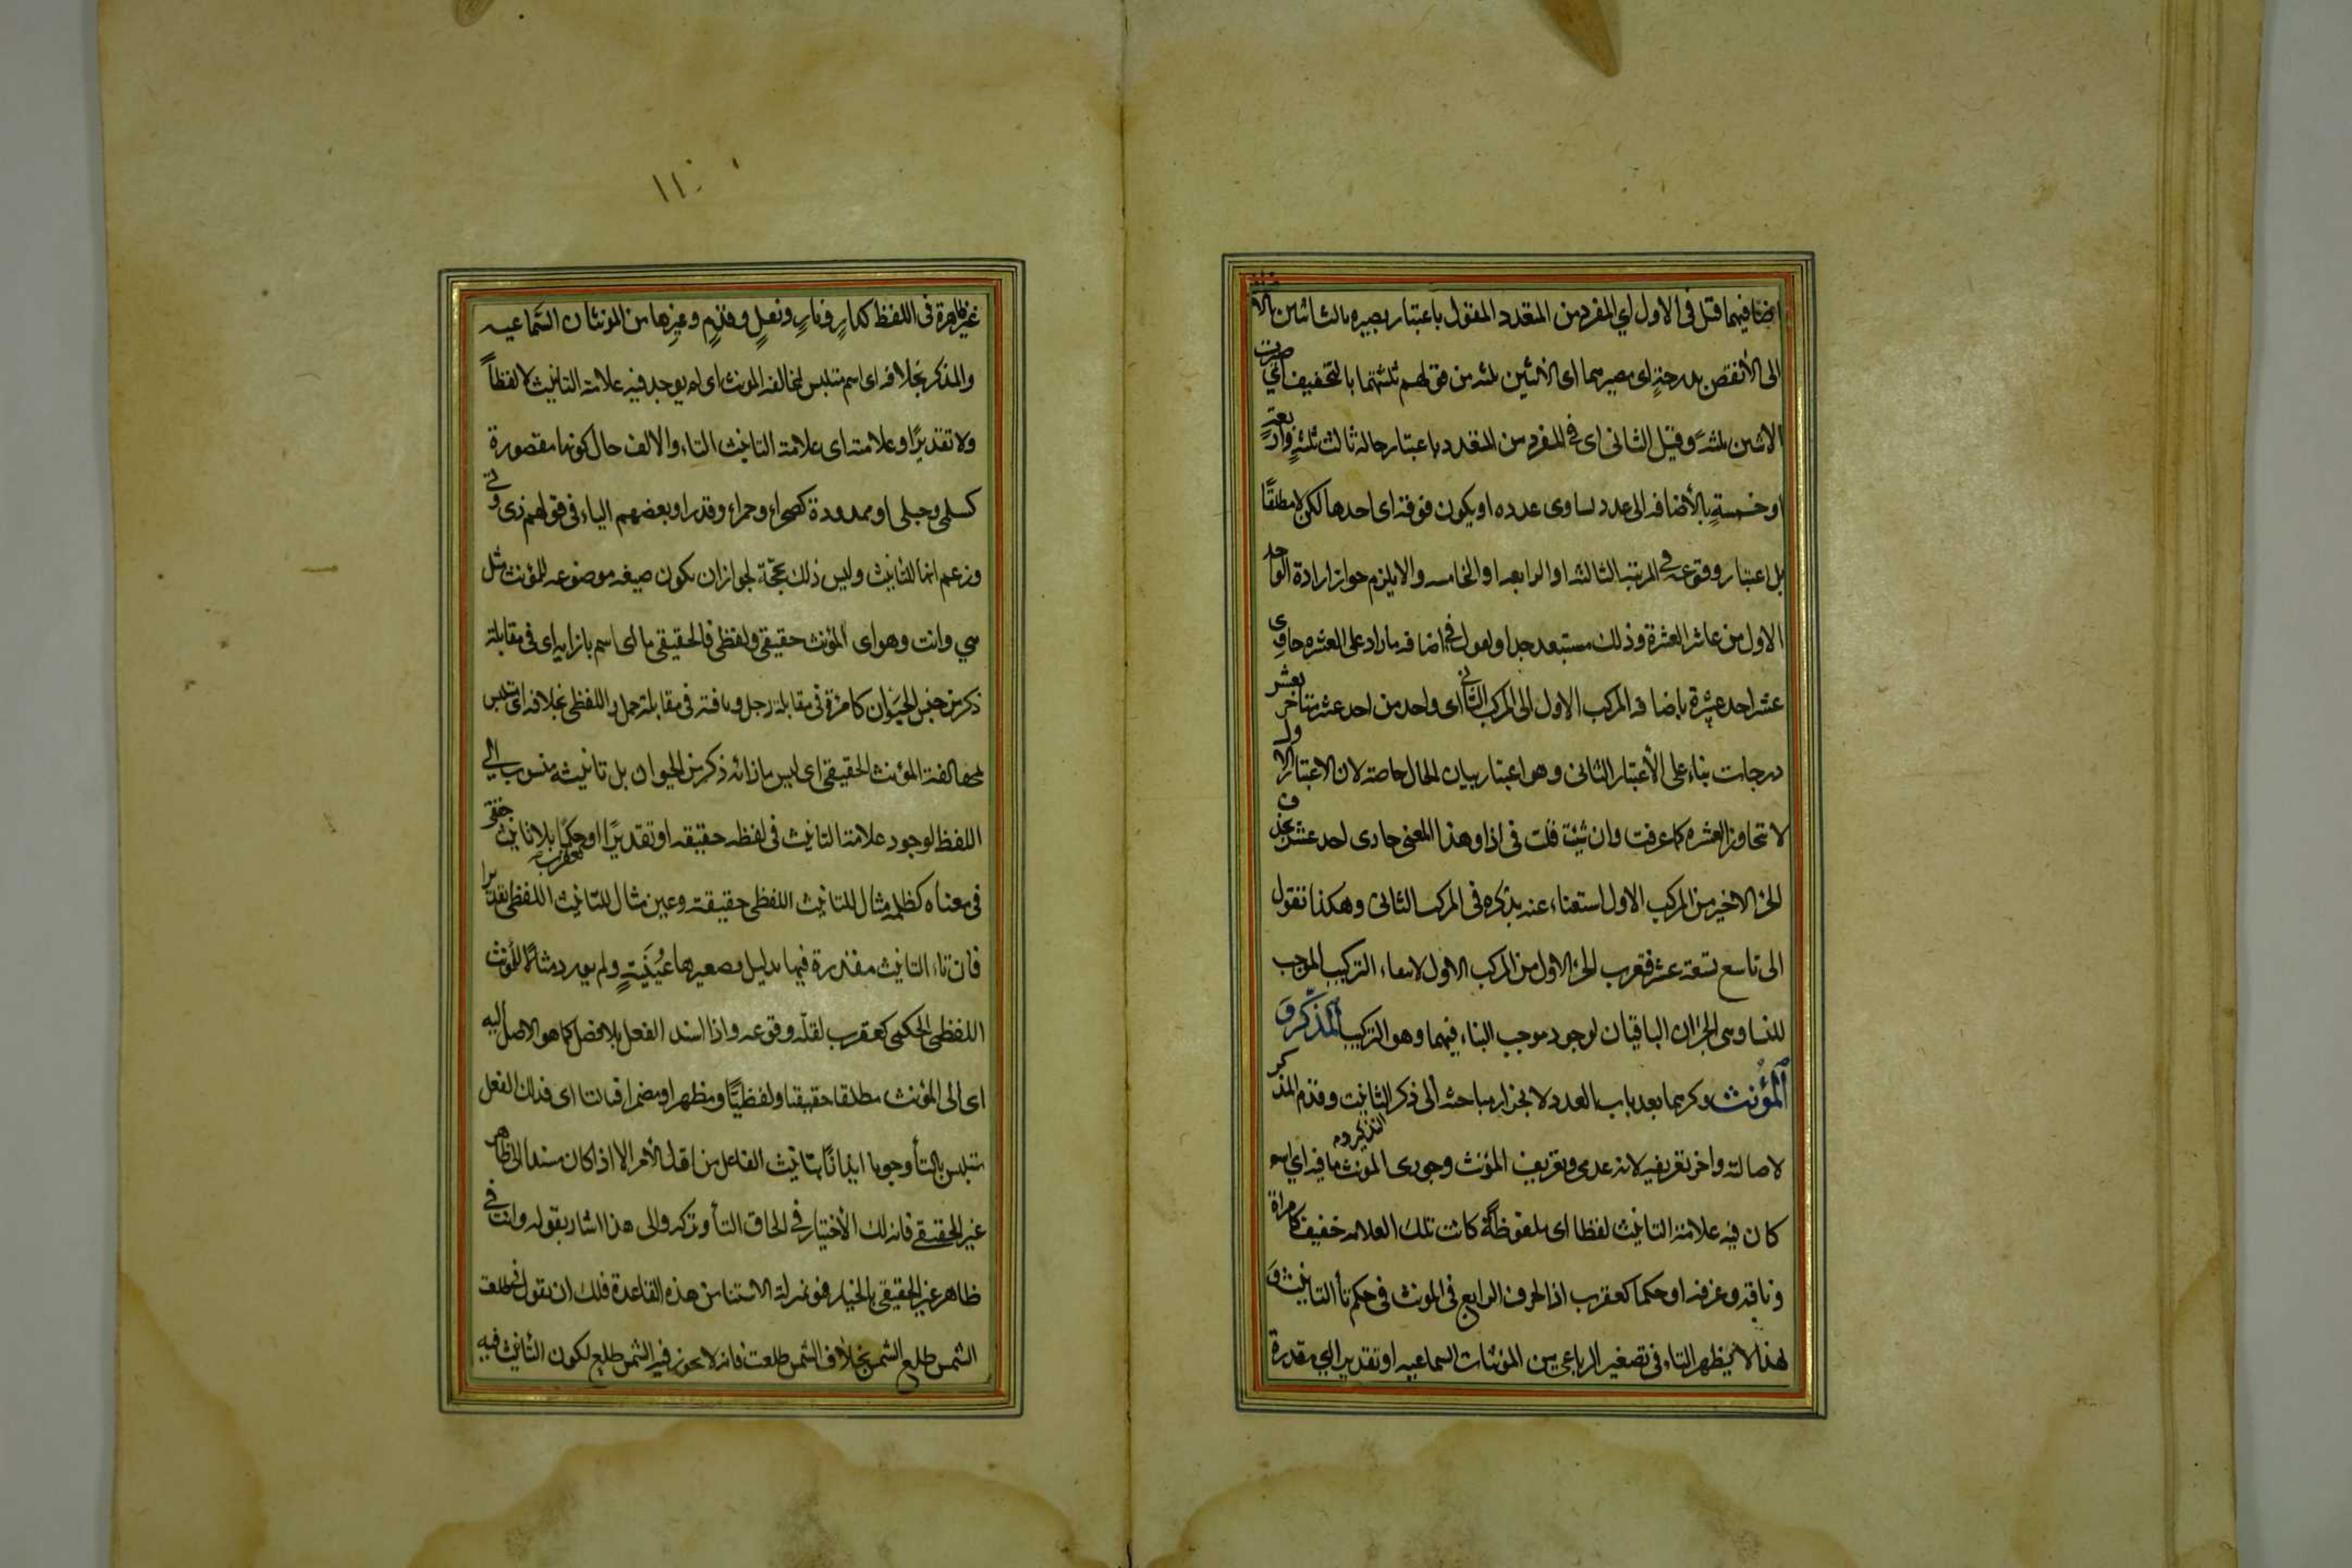 ايضا فيهما قيل في الاول اي المفرد من المتعدد المقول باعتبار تصييره ثالث اثنين بالاضافة
الى الأنقص بدرجةٍ اى مصيرهما اى الاثنين ثلثه من قولهم ثلثتهما بالتخفيف أي صيرت
الاثنين ثلثةً وقيل الثانى اى في المفرد من المتعدد باعتبار حاله ثالث ثلثةٍ واربعةٍ
او خمسةٍ بالأضافه الى عدد يساوى عدده او يكون فوقه اى احدها لكن لا مطلقًا
بل اعتبار وقوعه فى المرتبه الثالثه او الرابعه او الخامسه والا يلزم جواز ارادة الواحد
الاول من عاشر العشرة وذلك مستبعد جدا وتقول في اضافه ما زاد على العشره حادى
عشر احد عشرة باضافه المركب الاول الى المركب الثانى اى واحد من احد عشر متأخر بعشر
درجات بناء على الأعتبار الثانى وهو اعتبار بيان الحال خاصه لان الاعتبار الاول
لا تتجاوز العشره كما عرفت وان شئت قلت فى اداء هذا المعنى حادى احد عشر بحذف
الجزء الاخير من المركب الاول استغناء عنه بذكره فى المركب الثانى وهكذا تقول
الى تاسع تسعة عشر فتعرب الجزء الاول من المركب الاول لانتفاء التركيب الموجب
للبناء وبنى الجزءان الباقيان لوجود موجب البناء فيهما وهو التركيب المذكر و
المؤنث ذكرهما بعد باب العدد لانجرار مباحثه الى ذكر التانيث وقدم المذكر
لاصالته واخر تعريفيه لانه عدمى وتعريف المؤنث وجودى المؤنث ما فيه اي اسم
كان فيه علامة التانيث لفظا اى ملفوظةً كانت تلك العلامه حقيقة كامراة
وناقه وغرفه او حكما كعقرب اذ الحرف الرابع فى المونث فى حكم تأ التانيث و
لهذا لا يظهر التاء فى تصغير الرباعى من المؤنثات السماعيه او تقديرا اي مقدرة
١١٠
غير ظاهرة فى اللفظ كدارٍ ونارٍ ونعلٍ وقدمٍ وغيرها من المونثات السّماعيه
والمذكر بخلافه اى اسم متلبس لمخالفه المونث اى لم يوجد فيه علامة التانيث لا لفظاً
ولا تقديرًا وعلامته اى علامة التانيث التاء والالف حال كونها مقصورة
كسلمى وحبلى او ممدودة كصحراء وحمراء وقد زاد بعضهم الياء فى قولهم ذى وتى
وزعم انها للتانيث وليس ذلك بحجّة لجواز ان يكون صيغه موضوعه للمؤنث مثل
هي وانت وهو اى المؤنث حقيقى ولفظى فالحقيقى ما اى اسم بازايه اى فى مقابلة
ذكر من جنس الحيوان كامرأة فى مقابلة رجل وناقة فى مقابلة جمل واللفظى بخلافه اى متلبس
لمخالفة المؤنث الحقيقى اى ليس بازائه ذكر من الحيوان بل تانيثه منسوب الى
اللفظ لوجود علامة التانيث فى لفظه حقيقه او تقديرًا او حكمًا كعقرب بلا تانيث حقيقى
فى معناه كظلمه مثال للتانيث اللفظى حقيقة وعين مثال للتانيث اللفظى تقديرا
فان تاء التانيث مقدرة فيها بدليل تصغيرها عُيَيْنَةٍ ولم يورد مثالا للمؤنث
اللفظى الحكمى كعقرب لقلّه وقوعه واذا اسند الفعل بلا فصل كما هو الاصل اليه
اى الى المؤنث مطلقا حقيقيا ولفظيًّا ومظهرا ومضمرا فبالتا اى فذلك الفعل
متلبس بالتأ وجوبا ايذانًا بتانيث الفاعل من اول الأمر الا اذا كان مسندا الى ظاهر
غير الحقيقي فانه لك الأختيار فى الحاق التأ وتركه والى هذا اشار بقوله وانت فى
ظاهر غير الحقيقى بالخيار فهو بمنزلة الاستثنا من هذه القاعدة فلك ان تقول في طلعت
الشمس طلع الشمس بخلاف الشمس طلعت فانه لا يجوز فيه الشمس طلع لكون التانيث فيه